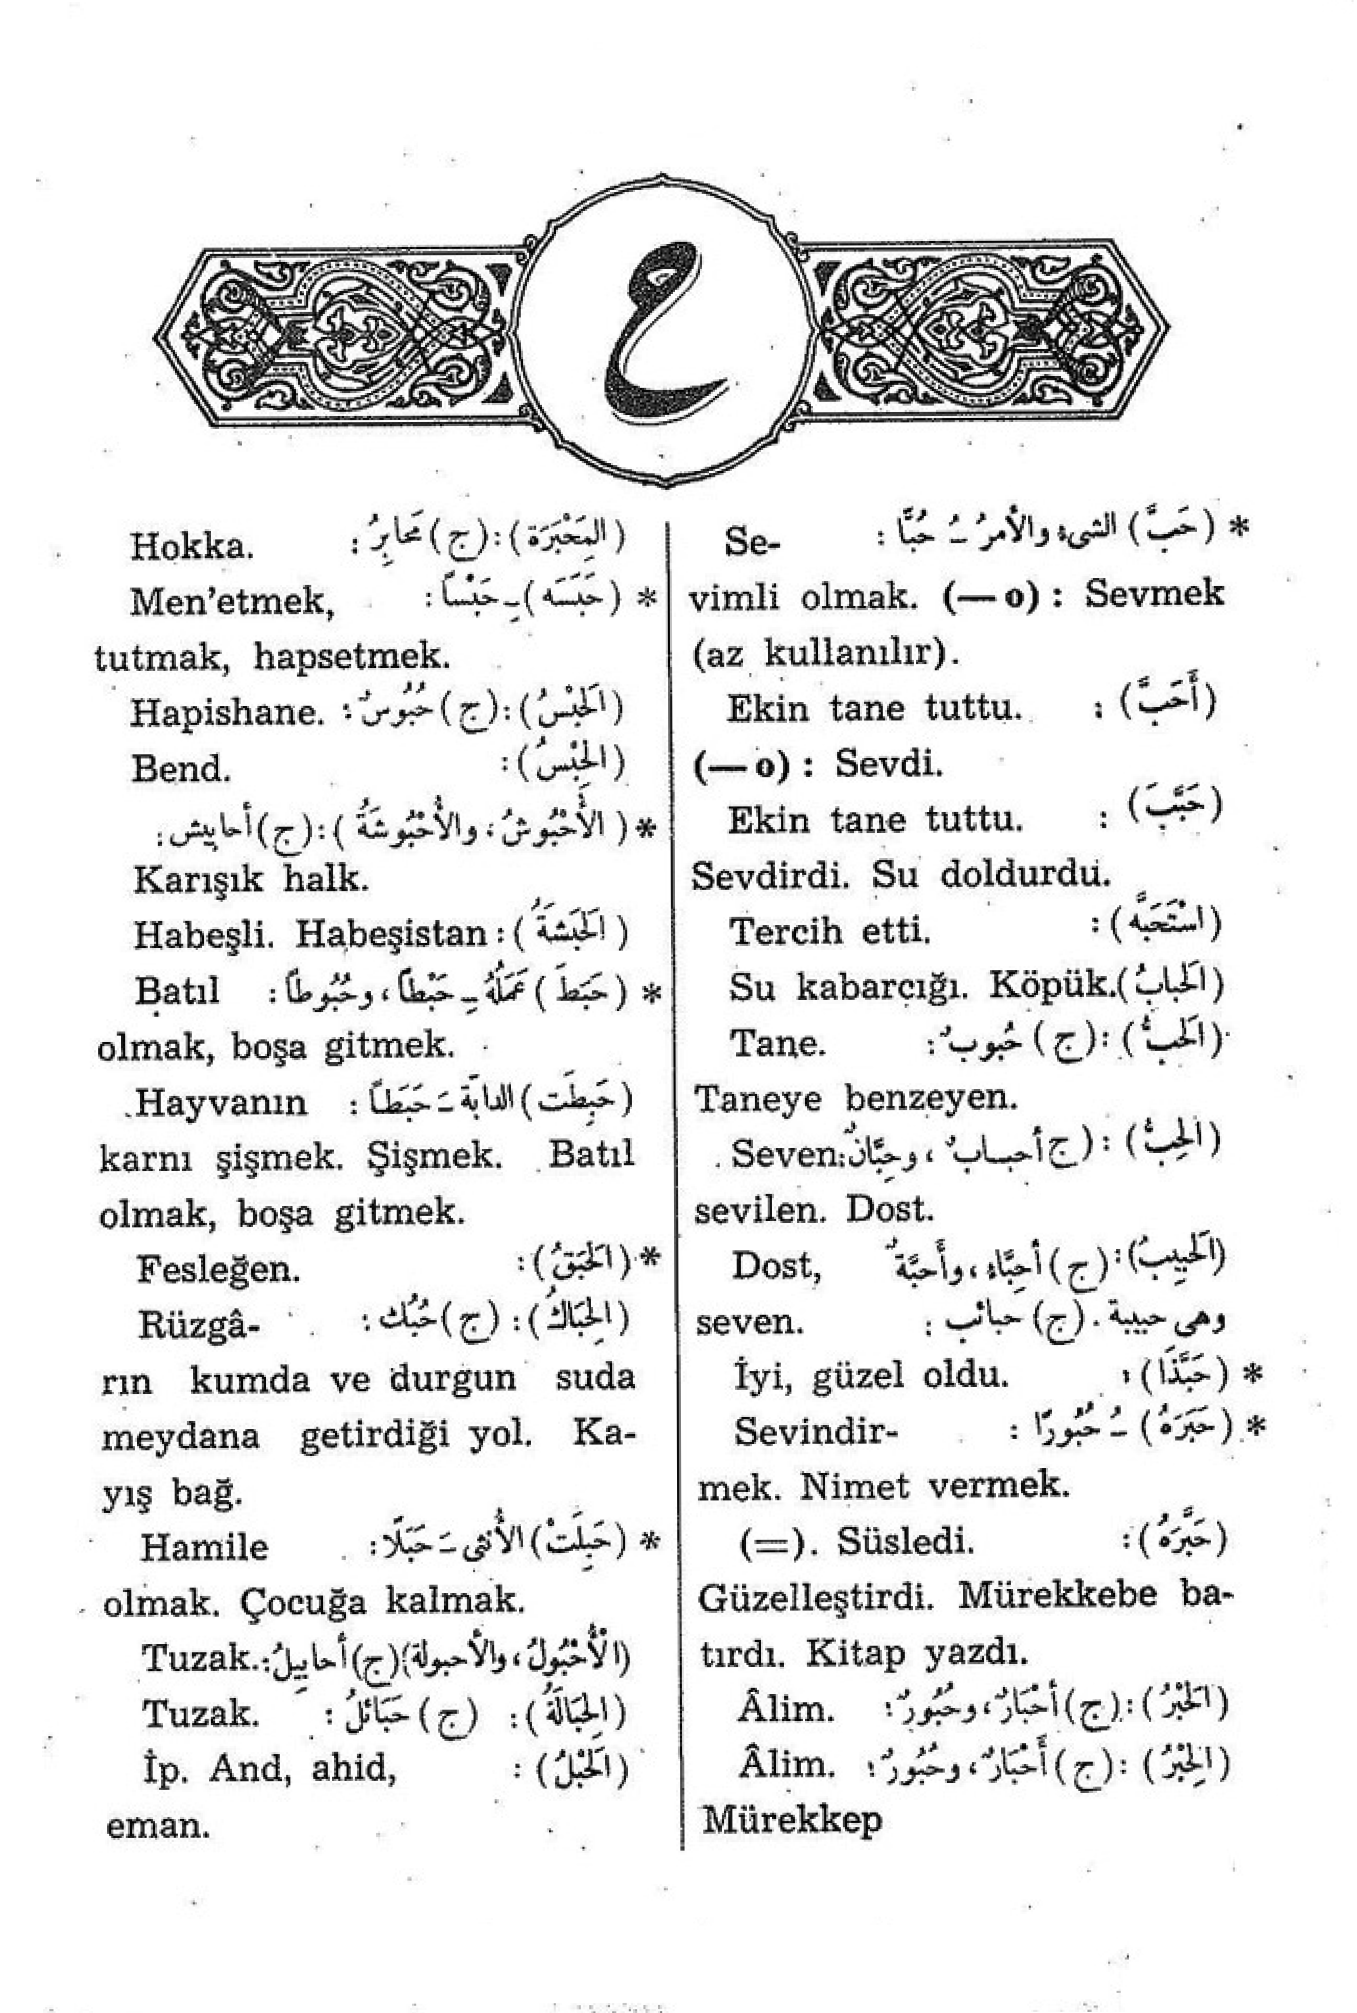 ح
* (حَبَّ) الشيءُ والأمرُ ـُ حُبًّا : Se-
vimli olmak. (—o) : Sevmek
(az kullanılır).
(أَحَبَّ) : Ekin tane tuttu.
(—o) : Sevdi.
(حَبَّبَ) : Ekin tane tuttu.
Sevdirdi. Su doldurdu.
(اسْتَحَبَّه) : Tercih etti.
(الحَبابُ) Su kabarcığı. Köpük.
(الحَبُّ) : (ج) حُبوبٌ : Tane.
Taneye benzeyen.
(الحِبُّ) : (ج أحبابٌ ، وحِبَّانٌ : Seven
sevilen. Dost.
(الحَبِيبُ) : (ج) أحِبَّاء، وأَحِبَّةٌ Dost,
وهى حبيبة . (ج) حبائب : seven.
* (حَبَّذَا) : İyi, güzel oldu.
* (حَبَرَهُ) ـُ حُبُورًا : Sevindir-
mek. Nimet vermek.
(حَبَّرَهُ) : (=). Süsledi.
Güzelleştirdi. Mürekkebe ba-
tırdı. Kitap yazdı.
(الحَبْرُ) : (ج) أَحْبَارٌ، وحُبُورٌ : Âlim.
(الحِبْرُ) : (ج) أَحْبَارٌ، وحُبُورٌ : Âlim.
Mürekkep
(المِحْبَرَة) : (ج) مَحابِرُ : Hokka.
* (حَبَسَه) ـِ حَبْساً : Men'etmek,
tutmak, hapsetmek.
(الحَبْسُ) : (ج) حُبُوسٌ : Hapishane.
(الحِبْسُ) : Bend.
* (الأُحْبُوشُ، والأُحْبُوشَةُ) : (ج) أحابيش :
Karışık halk.
(الحَبَشَةُ) : Habeşli. Habeşistan
* (حَبَطَ) عَمَلُهُ ـِ حَبْطاً، وحُبُوطاً : Batıl
olmak, boşa gitmek.
(حَبِطَت) الدابّة ـَ حَبَطاً : Hayvanın
karnı şişmek. Şişmek. Batıl
olmak, boşa gitmek.
* (الحَبَقُ) : Fesleğen.
(الحِبَاكُ) : (ج) حُبُك : Rüzgâ-
rın kumda ve durgun suda
meydana getirdiği yol. Ka-
yış bağ.
* (حَبِلَتْ) الأُنْثى ـَ حَبَلًا : Hamile
olmak. Çocuğa kalmak.
(الْأُحْبُولُ، والأحبولة) (ج) أحابِيلُ : Tuzak.
(الحِبَالَةُ) : (ج) حَبَائلُ : Tuzak.
(الحَبْلُ) : İp. And, ahid,
eman.